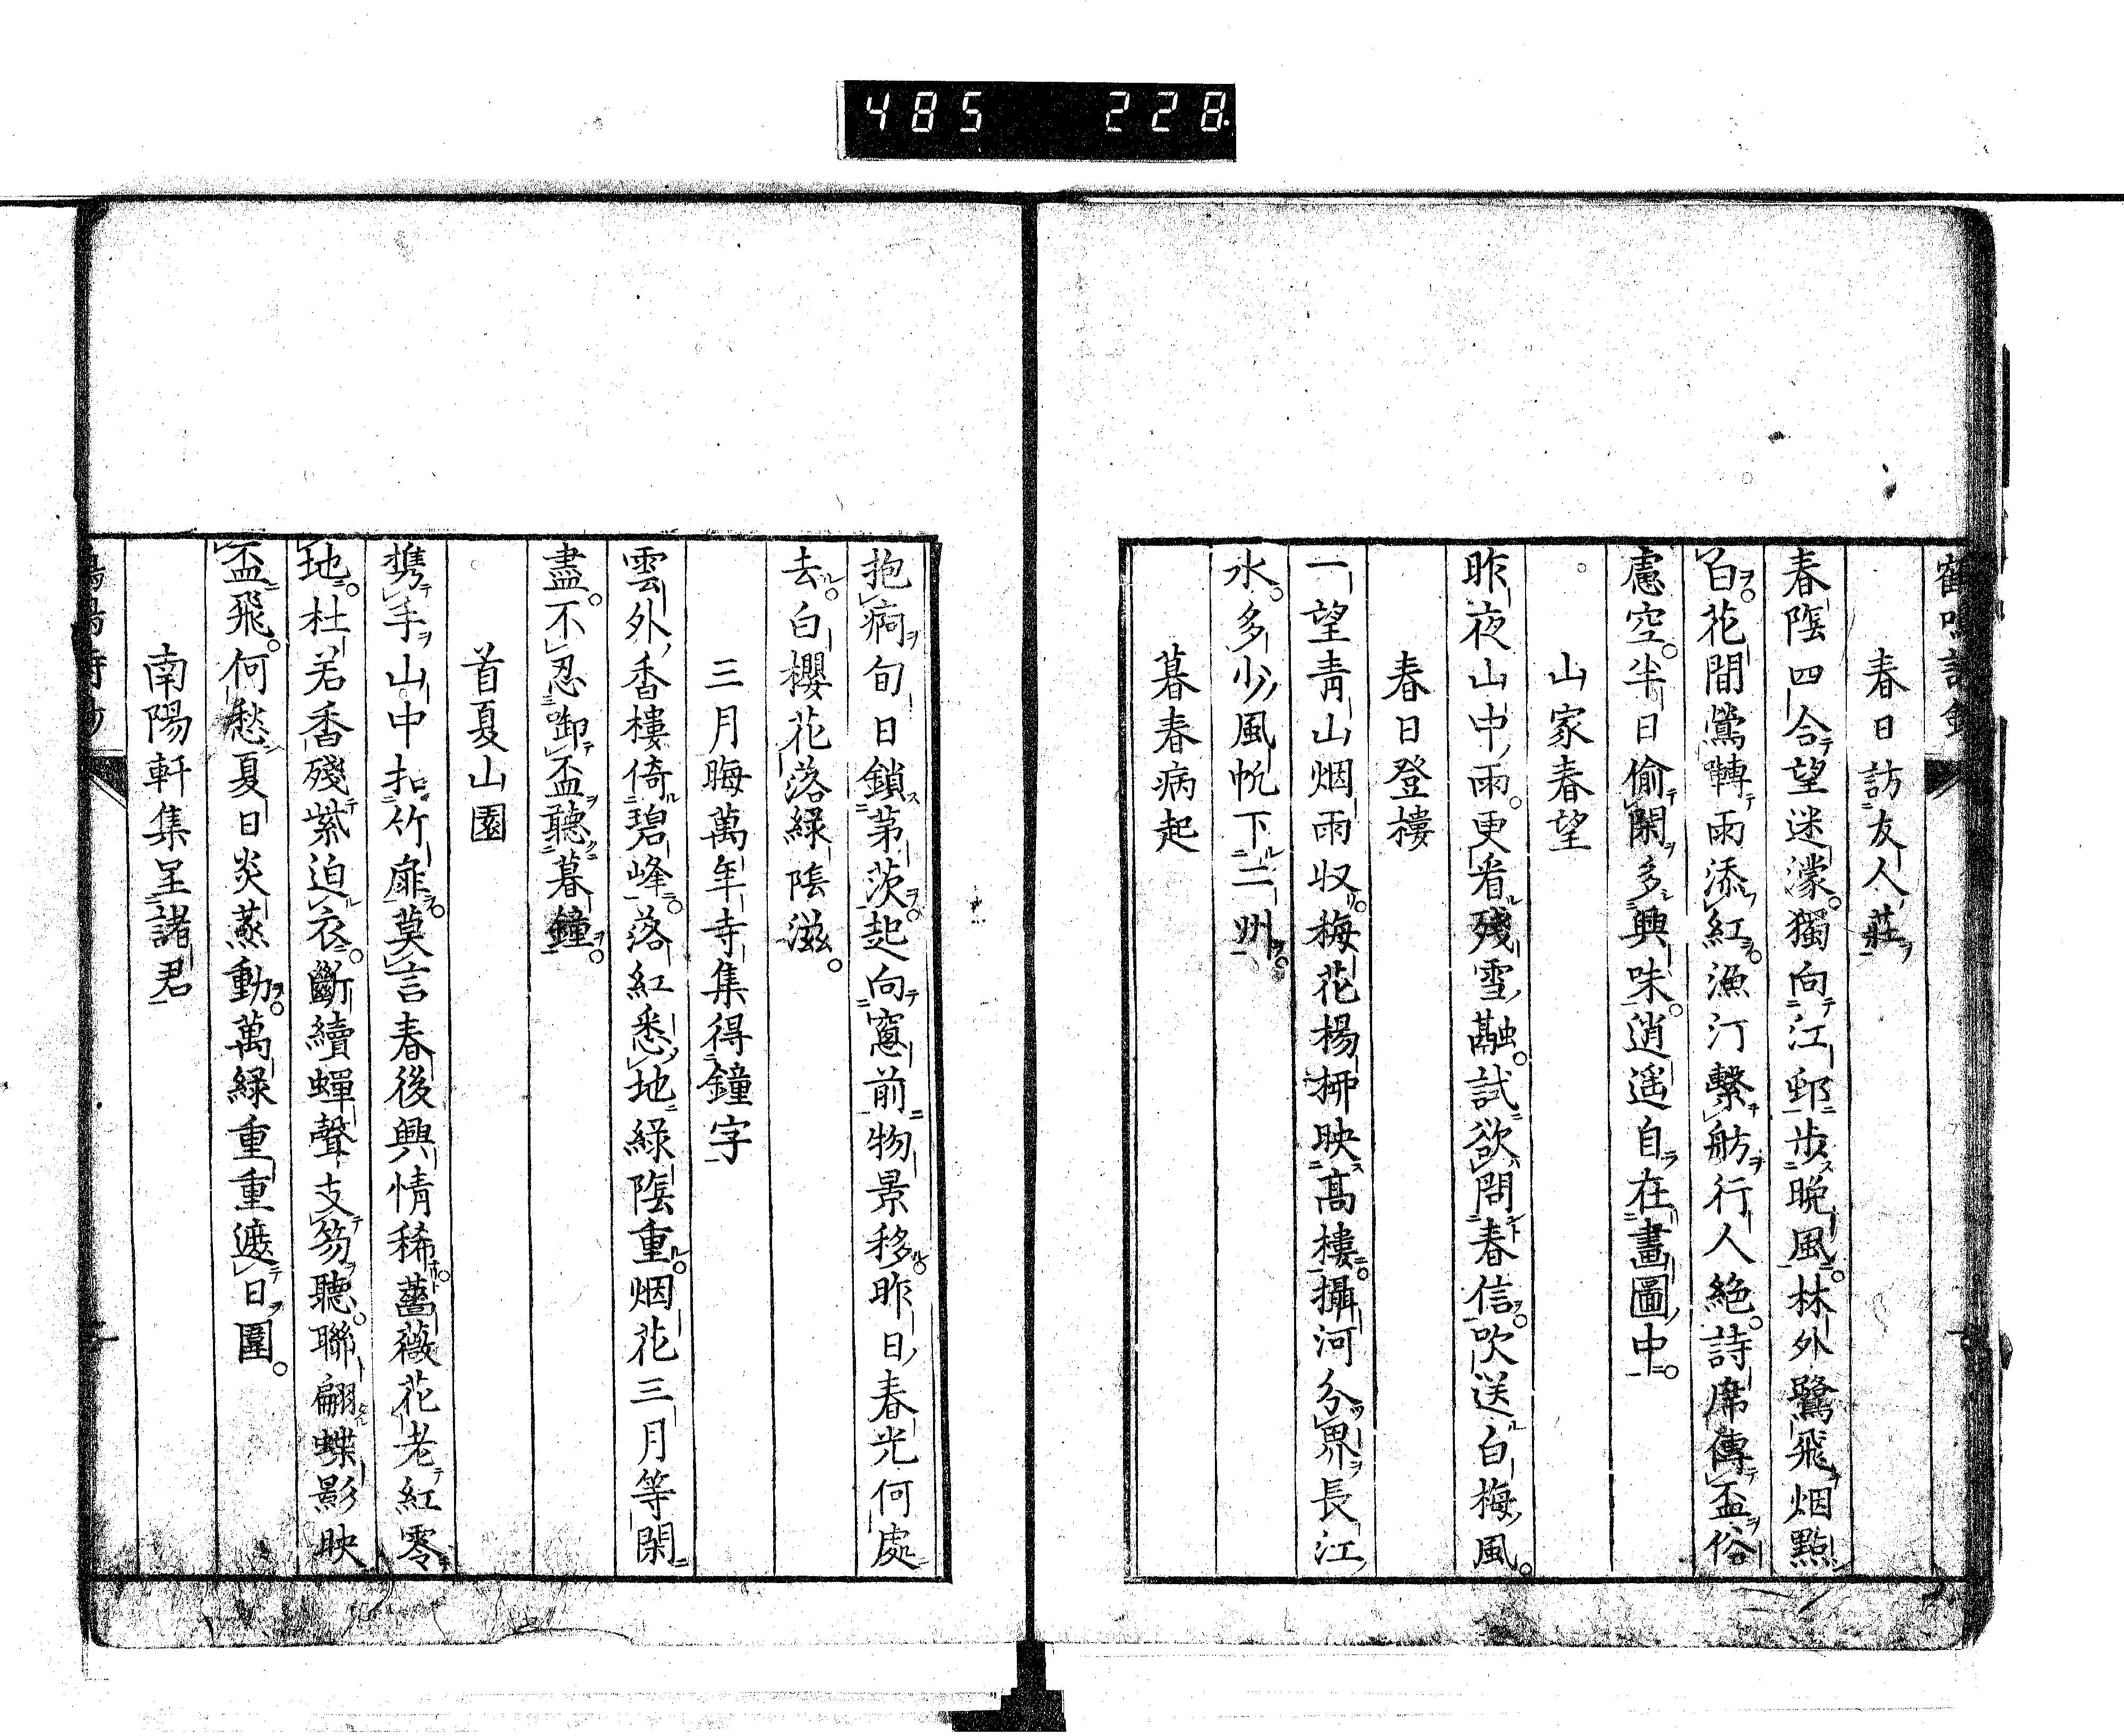 485 228
春日訪友人莊
春陰四合望迷濛獨向江邨步晩風林外鷺飛烟點
白花間鶯囀雨添紅漁汀繫舫行人絶詩席傳盃俗
慮空半日偷閑多興味逍遥自在畫圖中
山家春望
昨夜山中雨更看殘雪融試欲問春信吹送白梅風
春日登樓
一望青山烟雨収梅花楊栁映髙樓攝河分界長江
水多少風帆下二州
暮春病起
抱痾旬日鎖茅茨起向窻前物景移昨日春光何處
去白櫻花落緑陰滋
三月晦萬年寺集得鐘字
雲外香樓倚碧峰落紅悉地緑陰重烟花三月等閑
盡不忍卸盃聽暮鐘
首夏山園
携手山中扣竹扉莫言春後興情稀薔薇花老紅零
地杜若香殘紫迫衣斷續蟬聲支笏聽聯翩蝶影映
盃飛何愁夏日炎蒸動萬緑重重遮日圍
南陽軒集呈諸君